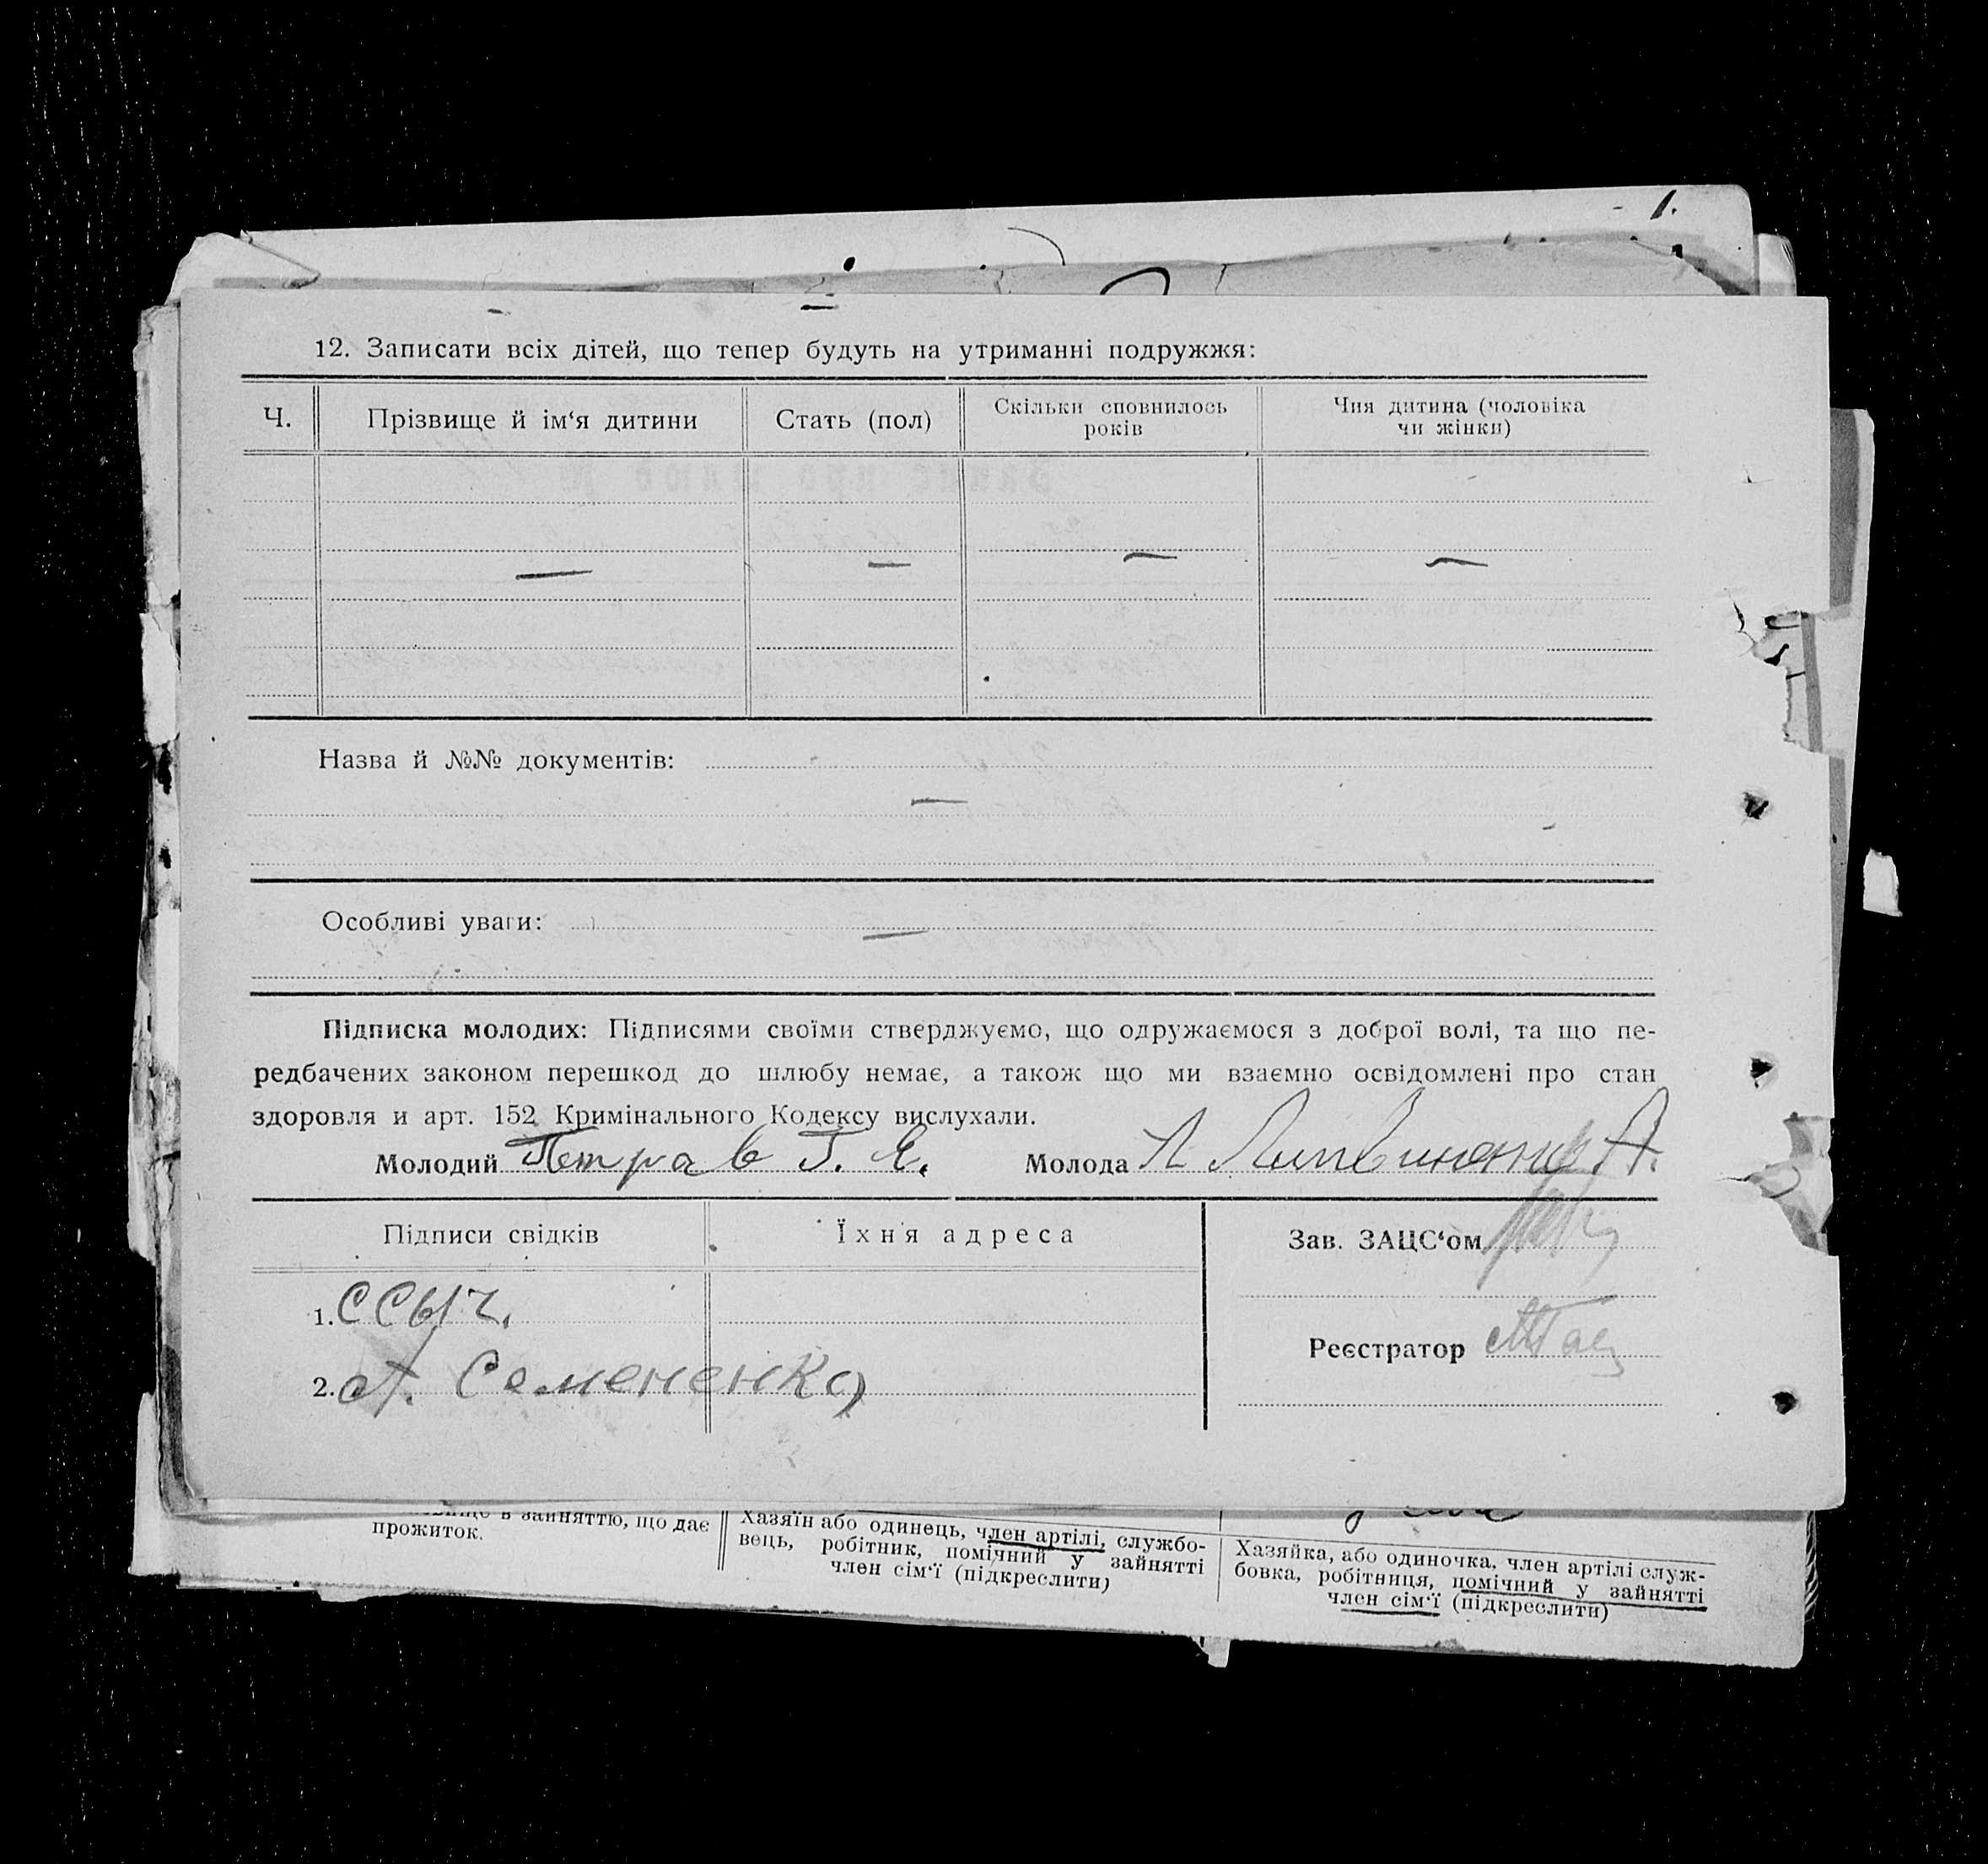 1.
12. Записати всіх дітей, що тепер будуть на утриманні подружжя:
Ч.
Прізвище й ім‘я дитини
Стать (пол)
Скільки сповнилось
років
Чия дитина (чоловіка
чи жінки)
—
—
—
—
Назва й №№ документів:
—
Особливі уваги:
—
Підписка молодих: Підписями своїми стверджуємо, що одружаємося з доброї волі, та що пе-
редбачених законом перешкод до шлюбу немає, а також що ми взаємно освідомлені про стан
здоровля и арт. 152 Кримінального Кодексу вислухали.
Молодий Петров Г. Е. Молода Литвиненко А.
Підписи свідків
Їхня адреса
Зав. ЗАЦС‘ом
1. ССыч.
Реєстратор
2. А. Семененко
в зайняттю, що дає
прожиток.
Хазяїн або одинець, член артілі, службо-
вець, робітник, помічний у зайнятті
член сім‘ї (підкреслити)
Хазяйка, або одиночка, член артілі служ-
бовка, робітниця, помічний у зайнятті
член сім‘ї (підкреслити)